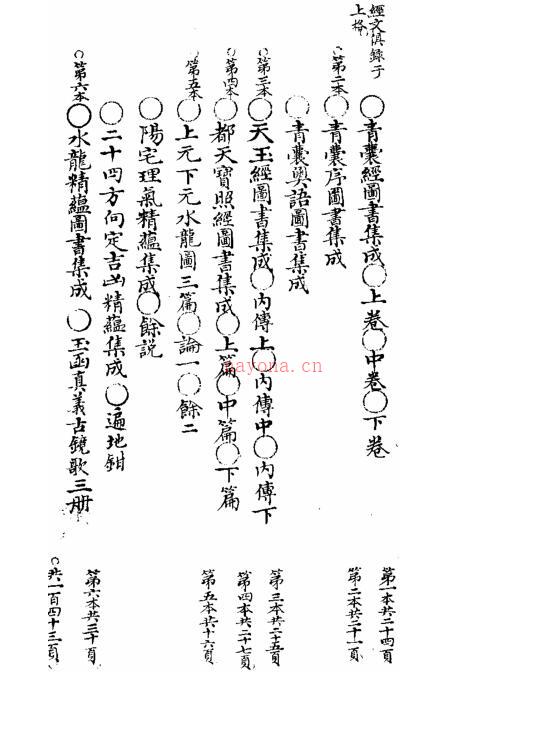 經文俱錄于
上格
○青囊經圖書集成○上卷○中卷○下卷
○第二本○青囊序圖書集成
○青囊奧語圖書集成
○第三本○天玉經圖書集成○內傳上○內傳中○內傳下
○第四本○都天寶照經圖書集成○上篇○中篇○下篇
○第五本○上元下元水龍圖三篇○論一○餘二
○陽宅理氣精蘊集成○餘説
○二十四方向定吉凶精蘊集成○遍地鉗
○第六本○水龍精蘊圖書集成○玉函真義古鏡歌三册
第一本共二十四頁
第二本共二十一頁
第三本共二十五頁
第四本共二十七頁
第五本共十六頁
第六本共三十頁
○共一百四十三頁
nayona.cn